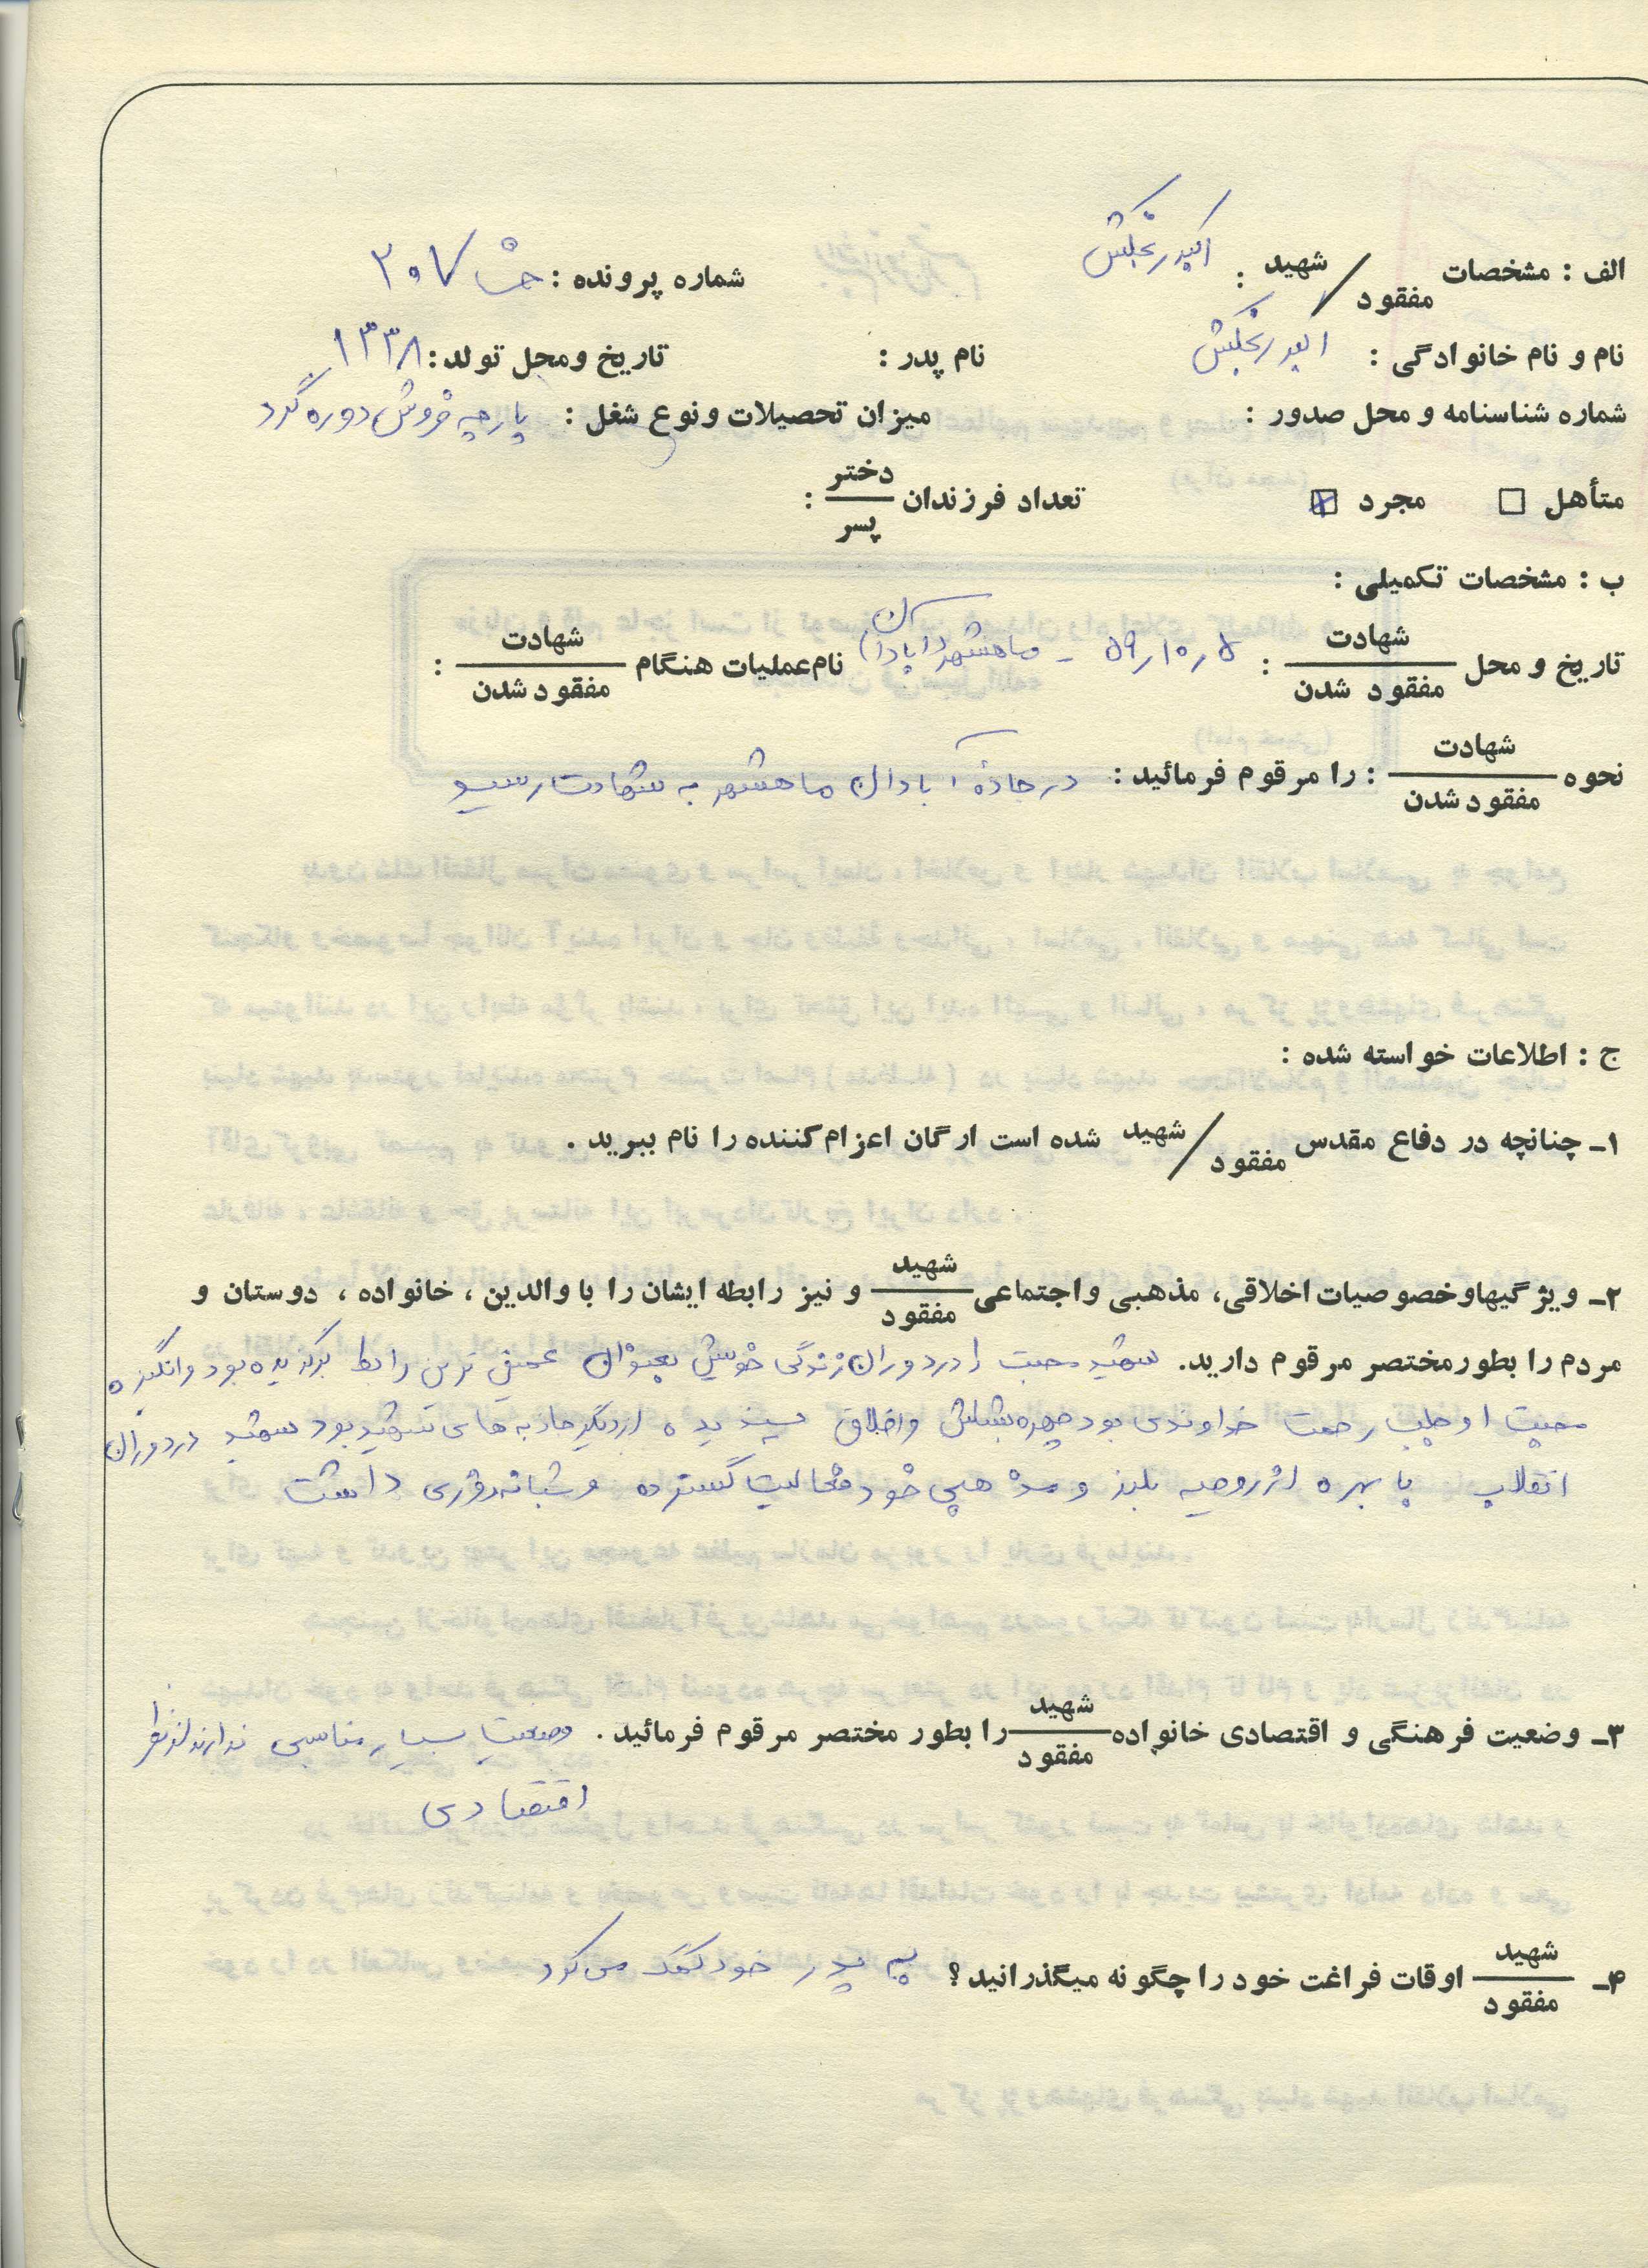 الف : مشخصات شهید / مفقود : اکبر رنجکش شماره پرونده : خش ۲۰۷
نام و نام خانوادگی : اکبر رنجکش نام پدر : تاریخ ومحل تولد : ۱۳۳۸
شماره شناسنامه و محل صدور : میزان تحصیلات ونوع شغل : پارچه فروش دوره گرد
متأهل ☐ مجرد ☒ تعداد فرزندان دختر / پسر :
ب : مشخصات تکمیلی :
تاریخ و محل شهادت / مفقود شدن : ۵۹،۱۰،۵ - ماهشهر (آبادان) نام عملیات هنگام شهادت / مفقود شدن :
نحوه شهادت / مفقود شدن : را مرقوم فرمائید : در جادهٔ آبادان ماهشهر به شهادت رسید
ج : اطلاعات خواسته شده :
۱ـ چنانچه در دفاع مقدس شهید / مفقود شده است ارگان اعزام کننده را نام ببرید .
۲ـ ویژگیهاو خصوصیات اخلاقی، مذهبی واجتماعی شهید / مفقود و نیز رابطه ایشان را با والدین ، خانواده ، دوستان و
مردم را بطور مختصر مرقوم دارید. شهید محبت را در دوران زندگی خویش بعنوان عمیق ترین رابط برگزیده بود وانگیزه
محبت او جلب رحمت خداوندی بود چهره بشاش واخلاق پسندیده از دیگر جاذبه های شهید بود شهید در دوران
انقلاب با بهره از روحیه بلند و خود فعالیت گسترده و شبانه روزی داشت
۳ـ وضعیت فرهنگی و اقتصادی خانواده شهید / مفقود را بطور مختصر مرقوم فرمائید . وضعیت بسیار مناسبی ندارند از نظر
اقتصادی
۴ـ شهید / مفقود اوقات فراغت خود را چگونه میگذرانید ؟ به پدر خود کمک می کرد